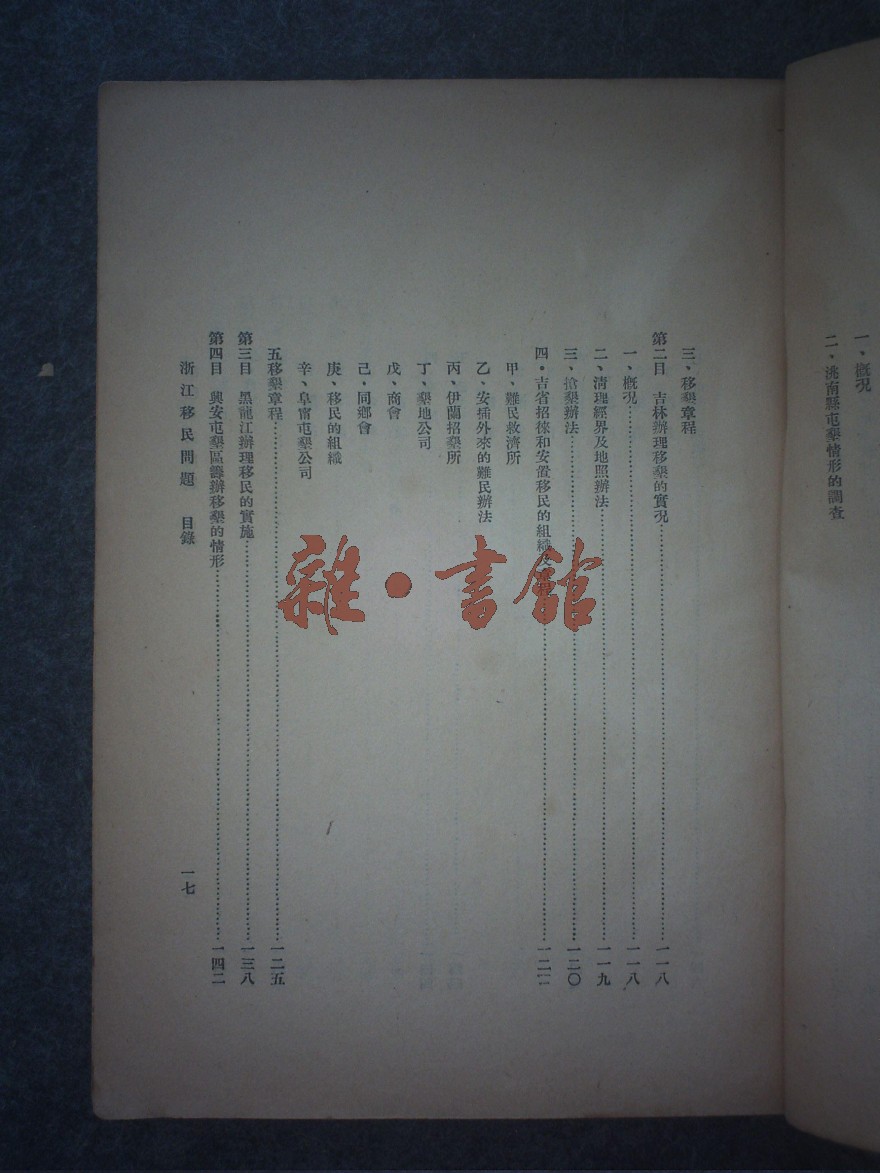 一、概況
二、洮南縣屯墾情形的調查
三、移墾章程
第二目 吉林辦理移墾的實況……一一八
一、概況……一一八
二、清理經界及地照辦法……一一九
三、搶墾辦法……一二〇
四、吉省招徠和安置移民的組織……一二二
甲、難民救濟所
乙、安插外來的難民辦法
丙、伊蘭招墾所
丁、墾地公司
戊、商會
己、同鄉會
庚、移民的組織
辛、阜甯屯墾公司
五移墾章程……一二五
第三目 黑龍江辦理移民的實施……一三八
第四目 興安屯墾區籌辦移墾的情形……一四二
浙江移民問題 目錄
一七
雜·書館